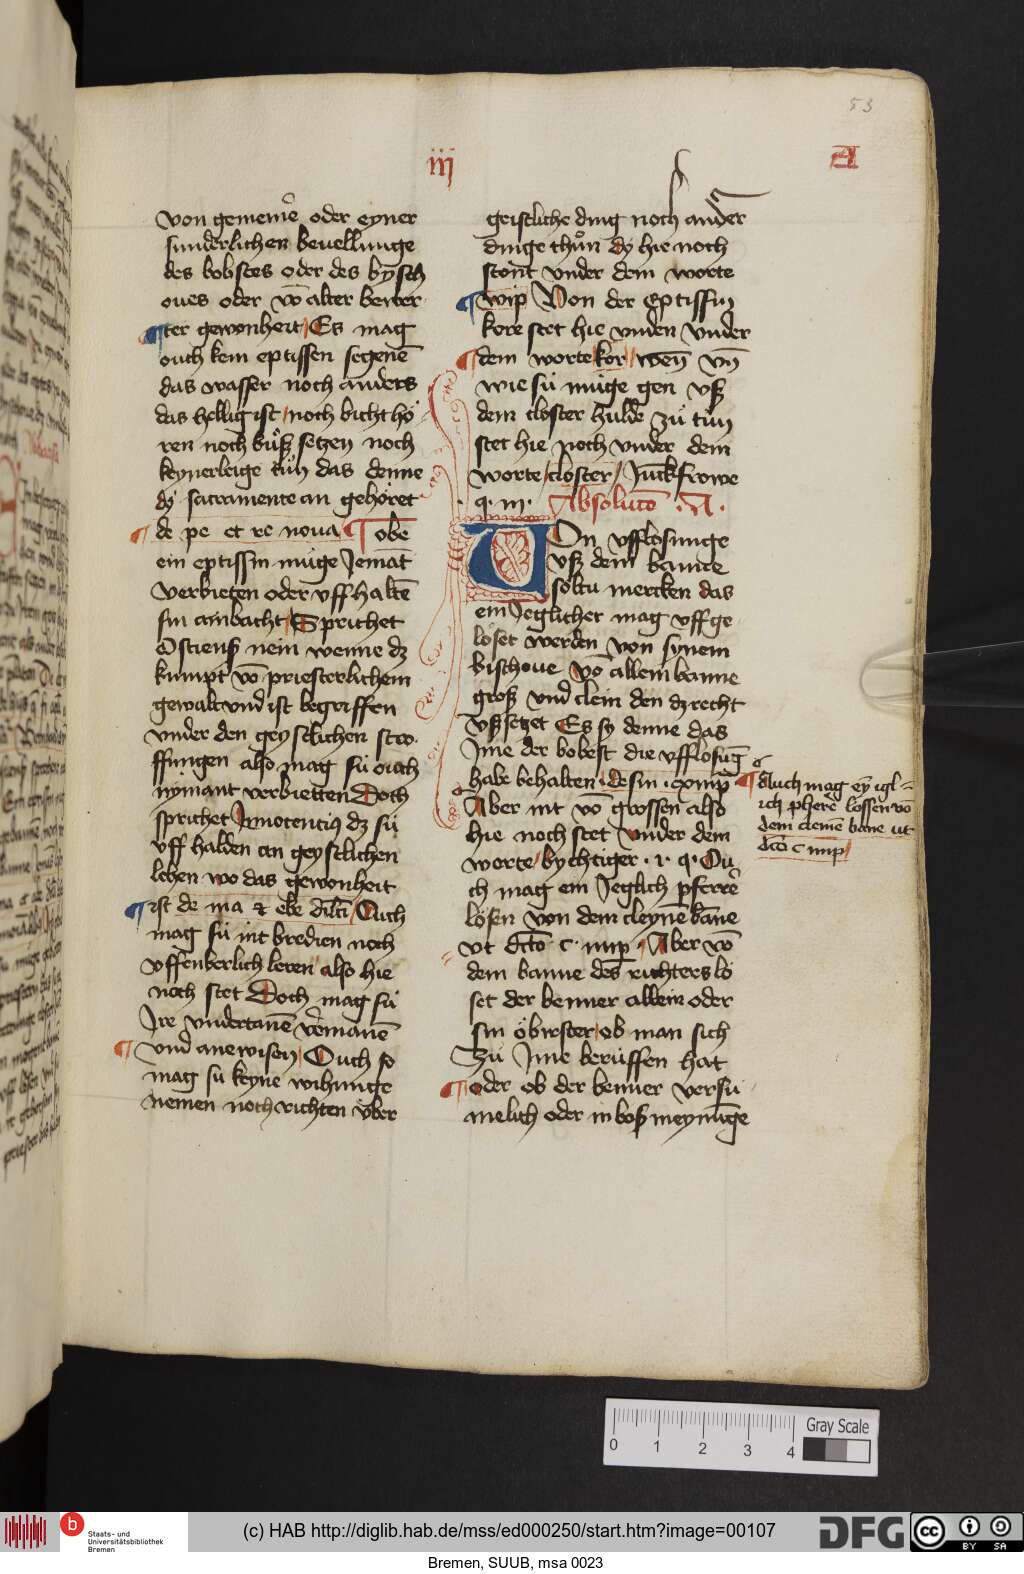 53
iij
A
von gemeinē oder eyner
sunderlichen bevellunge
des bobstes oder des bysch
oues oder vō alter bewer
ter gewonheit / Es mag
ouch kein eptissen segenē
das wasser noch anders
das heilig ist / noch bicht hö
ren noch buͦsz setzen noch
keynerleige tuͦn das denne
dz sacramente an gehöret
de pe et re noua Obe
ein eptissin müge Jemāt
verbieten oder vff haltē
sin ambacht / Sprichet
nein wenne dz
kumpt vō priesterlichem
gewalt vnd ist begriffen
vnder den geystlichen strof
ffungen also mag sü ouch
nymant verbietten Doch
sprichet Jnnocentius dz sü
vff halden an geystlichen
lehen wo das gewonheit
ist de ma et obe dilcti / Ouch
mag sü nit bredien noch
vffenberlich leren also hie
noch stet Doch mag sü
Jre vndertanē v̄manē
vnd anewisen / Ouch so
mag su keyne wihunge
nemen noch richten v̈ber
geistliche ding noch ander
dinge thuͦn dÿ hie noch
stont vnder dem worte
wip Von der eptissin
kore stet hie vnden vnder
dem worte kor / wen̄ vn̄
wie sü müge gen vsz
dem closter hulde zü tün
stet hie noch vnder dem
worte / closter / Junckfrowe
q. iii. Absolucō .A.
Von vfflosunge
vsz dem banne
soltu mercken das
ein Jeglicher mag vffge
löset werden von synem
bischoue vō allem banne
grosz vnd clein den dz recht
vsz setzet Es sy denne das
Jme der bobest die vfflosūg
habe behalten. de sin. exomp
Aber nit vō grossen also
hie noch stet vnder dem
worte / bychtiger. r. q. Ou
ch mag ein Jeglich pferrē
lösen von dem cleynē bāne
vt dcto c. nup. Aber vō
dem banne des richters lö
set der benner allein oder
sin öbirster / ob man sich
Zü Jme berüffen hat
oder ob der benner versü
melich oder in bosz meynūge
Auch mag eȳ igl=
ich pherē lossen vō
dem clenē bāne ut
dcō c nup
0 1 2 3 4
Gray Scale
b
Staats- und
Universitätsbibliothek
Bremen
(c) HAB http://diglib.hab.de/mss/ed000250/start.htm?image=00107
DFG
cc
BY SA
Bremen, SUUB, msa 0023